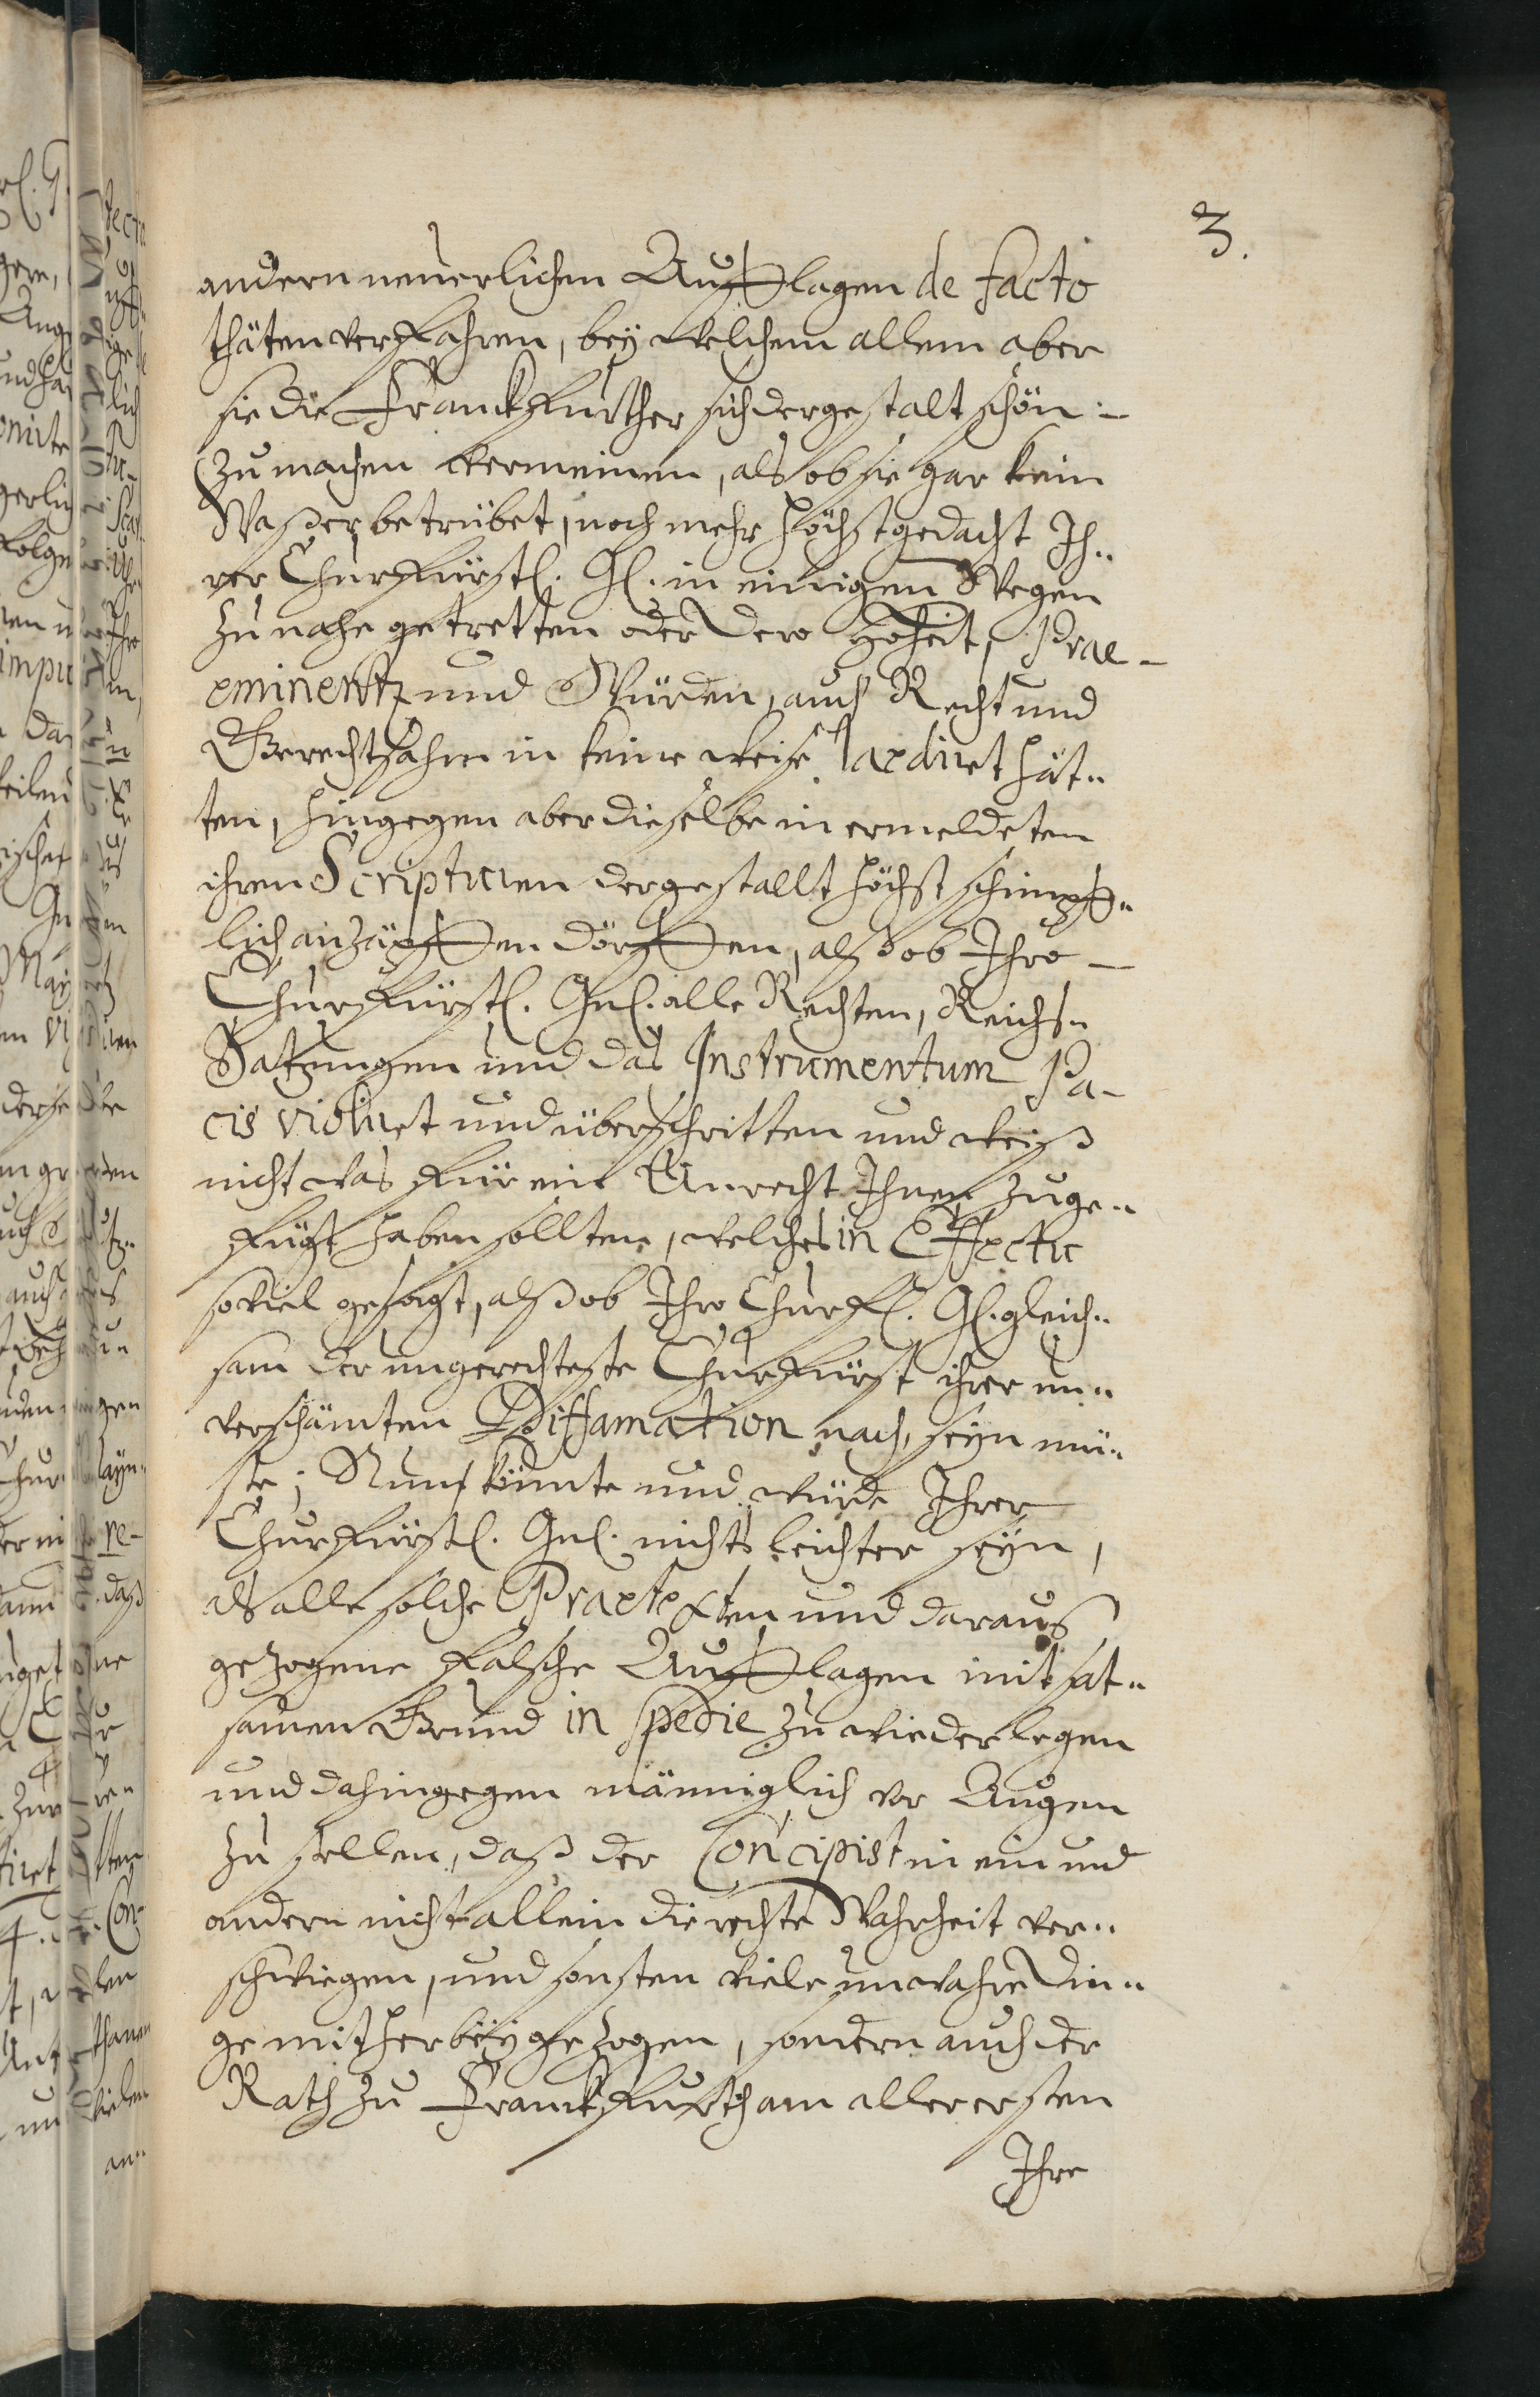 3.
andern neuerlichen Aufflagen de facto
thäten verfahren, bey welchem allem aber
sie die Franckfurther sich dergestalt schön
zu machen vermeinen, als ob sie gar kein
Waßer betrübet, noch mehr höchstgedacht Ih„
rer Churfürstl. Gl. in einigem Wegen
zu nahe getretten oder dero Hoheit, Prae-
eminentz und Würden, auch Recht und
Gerechtsahm in keine weise laediret hät„
ten, hingegen aber dieselbe in ermeldetem
ihren Scripturen dergestallt höchst schimpff„
lich anzäpffen dörffen, alß ob Ihro
Churfürstl. Gnl. alle Rechten, Reichs„
Satzungen und das Instrumentum Pa-
cis violiret und überschritten und weiß
nicht was für ein Unrecht Ihnen zuge„
fügt haben sollten, welches in Effectu
soviel gesagt, alß ob Ihro Churfl. Gl. gleich„
sam der ungerechteste Churfürst ihrer un„
verschämten Diffamation nach, seyn mü„
ste; Nun könnte und würde Ihrer
Churfürstl. Gnl. nichts leichter seyn,
als alle solche Praetexten und daraus
gezogene falsche Aufflagen mit sat„
samen Grund in specie zu wiederlegen
und dahingegen männiglich vor Augen
zu stellen, daß der Concipist in ein und
andern nicht allein die rechte Wahrheit ver„
schwiegen, und sonsten viele unwahre Din„
ge mit herbeygezogen, sondern auch der
Rath zu Franckfurth am allerersten
Ihre